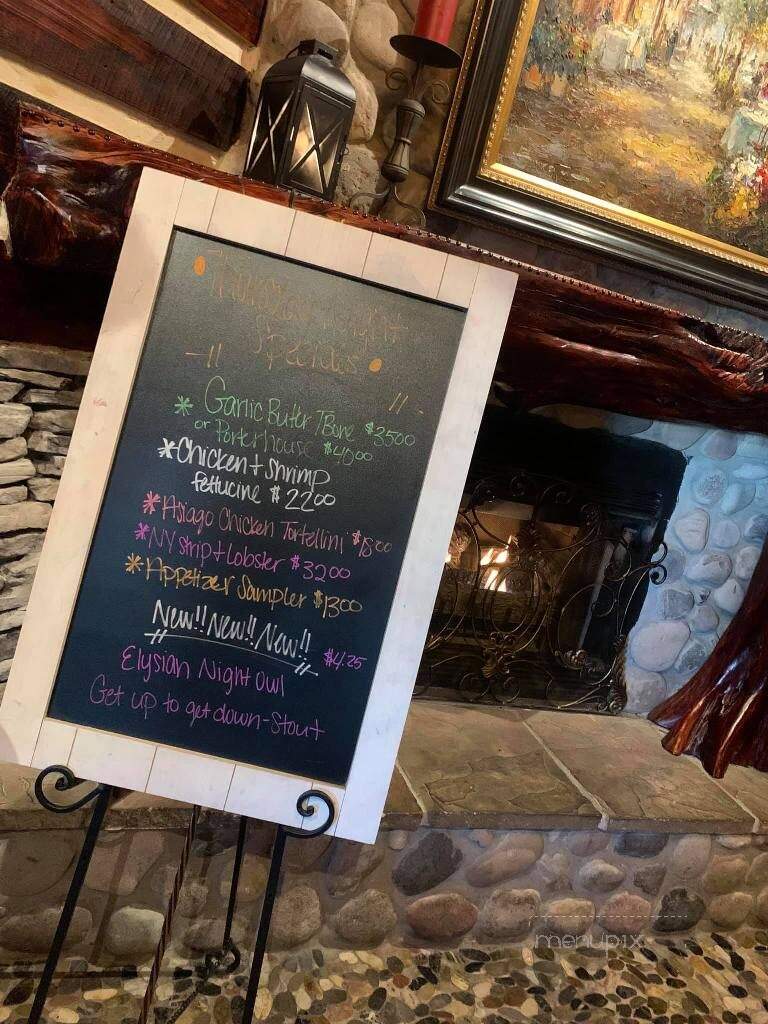 Thursday Night
Specials
* Garlic Butter TBone $35.00
or Porterhouse $40.00
* Chicken + Shrimp
fettucine $22.00
* Asiago Chicken Tortellini $18.00
* NY Strip + Lobster $32.00
* Appetizer Sampler $13.00
New!! New!! New!!
$4.25
Elysian Night owl
Get up to get down - Stout
menupix